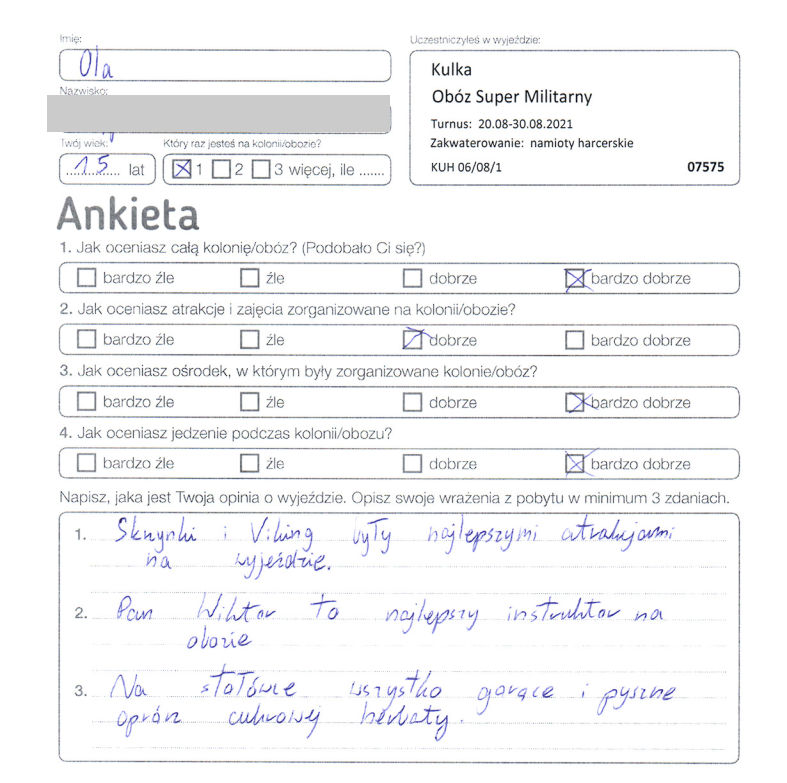 Imię:
Ola
Uczestniczyłeś w wyjeździe:
Kulka
Obóz Super Militarny
Turnus: 20.08-30.08.2021
Zakwaterowanie: namioty harcerskie
KUH 06/08/1 07575
Nazwisko:
Twój wiek: Który raz jesteś na kolonii/obozie?
15 lat 1 2 3 więcej, ile .......
Ankieta
1. Jak oceniasz całą kolonię/obóz? (Podobało Ci się?)
bardzo źle źle dobrze bardzo dobrze
2. Jak oceniasz atrakcje i zajęcia zorganizowane na kolonii/obozie?
bardzo źle źle dobrze bardzo dobrze
3. Jak oceniasz ośrodek, w którym były zorganizowane kolonie/obóz?
bardzo źle źle dobrze bardzo dobrze
4. Jak oceniasz jedzenie podczas kolonii/obozu?
bardzo źle źle dobrze bardzo dobrze
Napisz, jaka jest Twoja opinia o wyjeździe. Opisz swoje wrażenia z pobytu w minimum 3 zdaniach.
1. Skrzynki i Viking były najlepszymi atrakcjami
na wyjeździe.
2. Pan Wiktor to najlepszy instruktor na
obozie
3. Na stołówce wszystko gorące i pyszne
oprócz cukrowej herbaty.